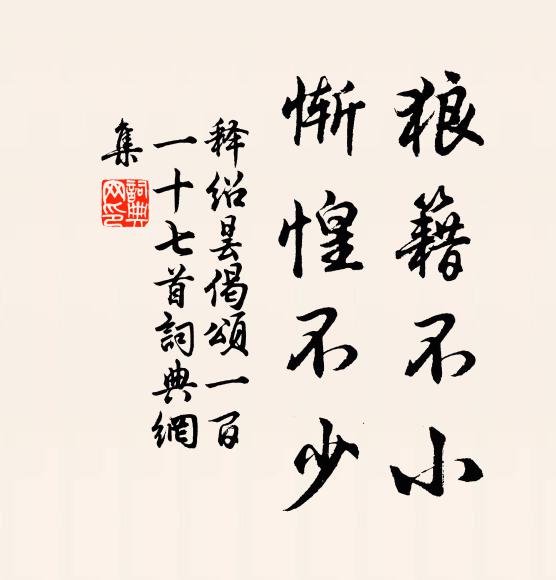 狼籍不小
惭惶不少
释绍昙偈颂一百
一十七首詞典網
集
詞典网印